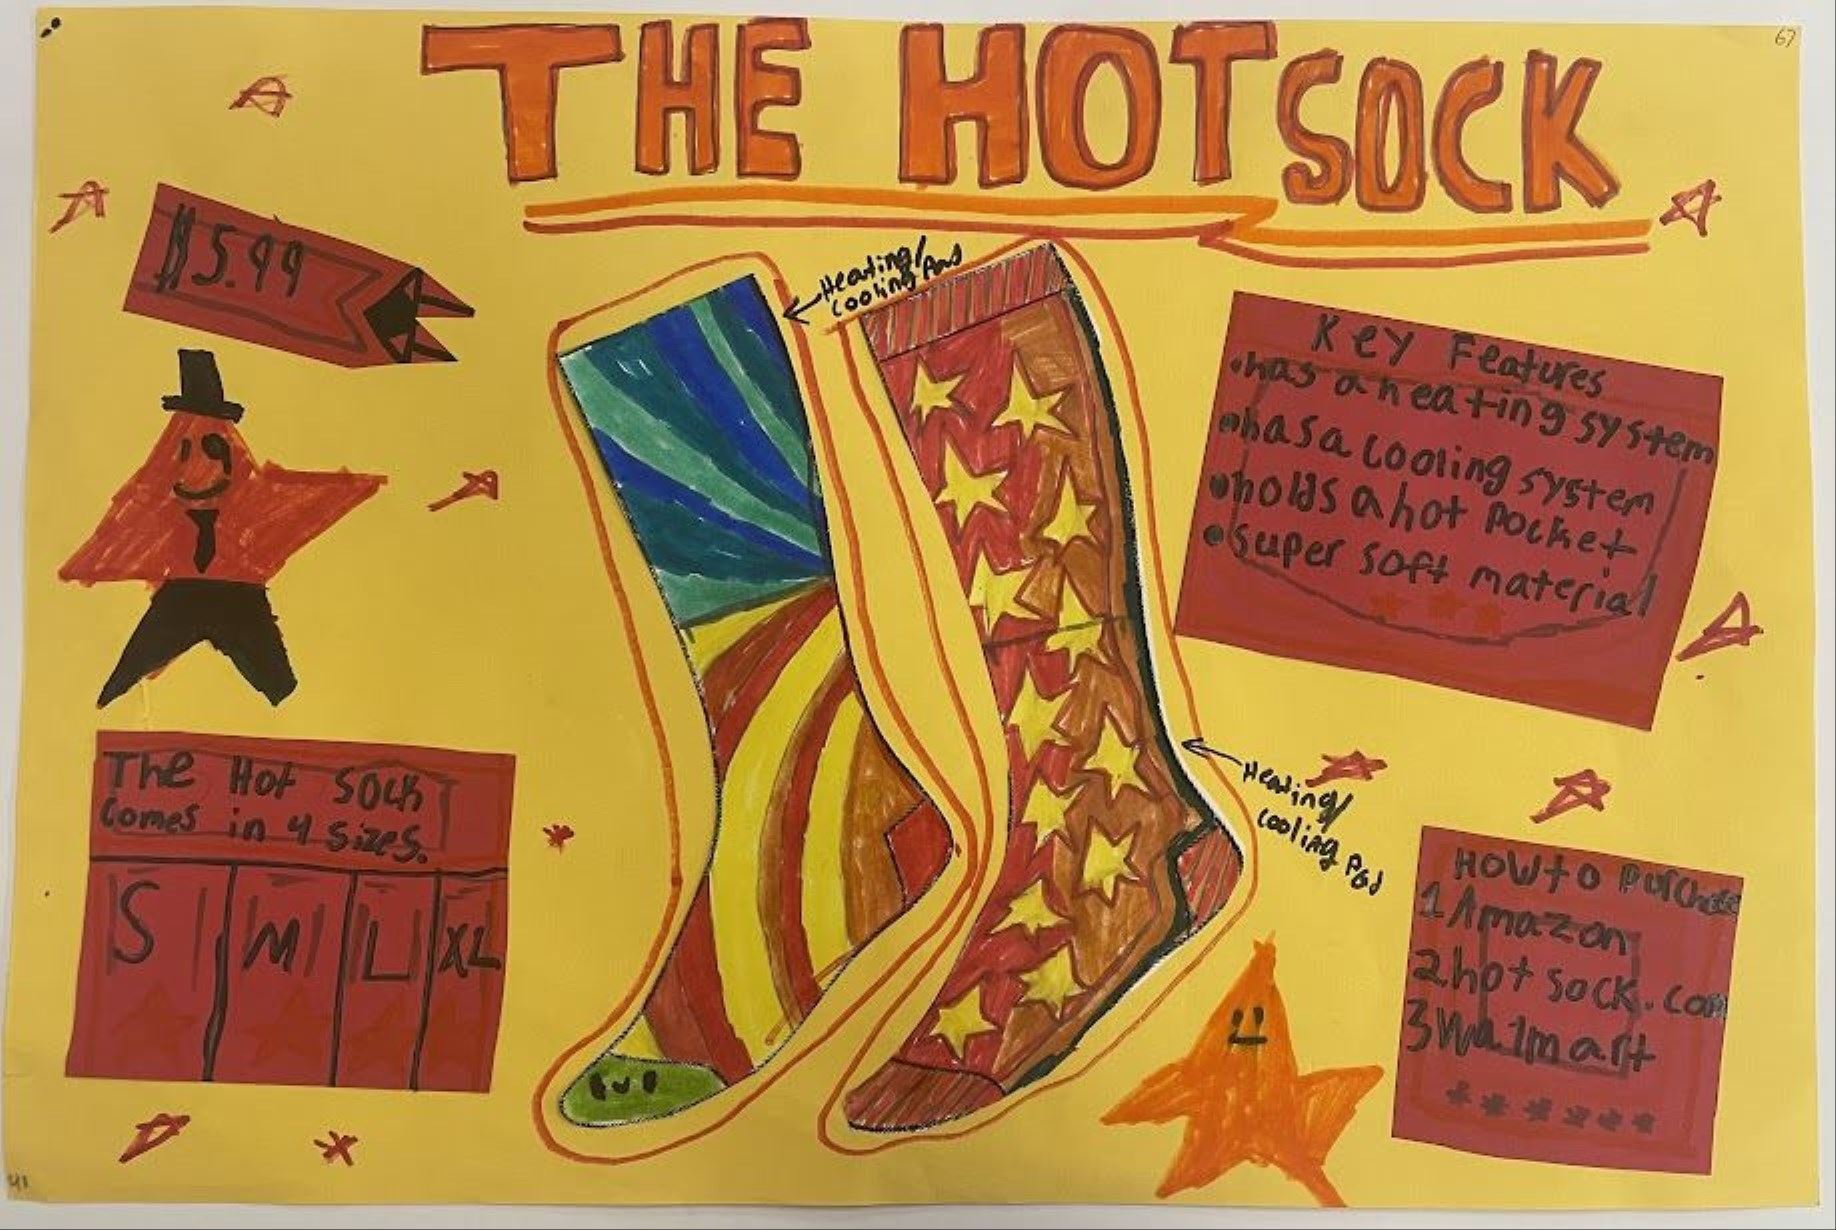 THE HOT SOCK
67
$5.99
Heating/
cooling Pad
Key Features
•has a heating system
•has a cooling system
•holds a hot pocket
•super soft material
The Hot Sock
comes in 4 sizes.
S M L XL
Heating/
cooling Pad
How to purchase
1 Amazon
2 hot sock.com
3 Walmart
41